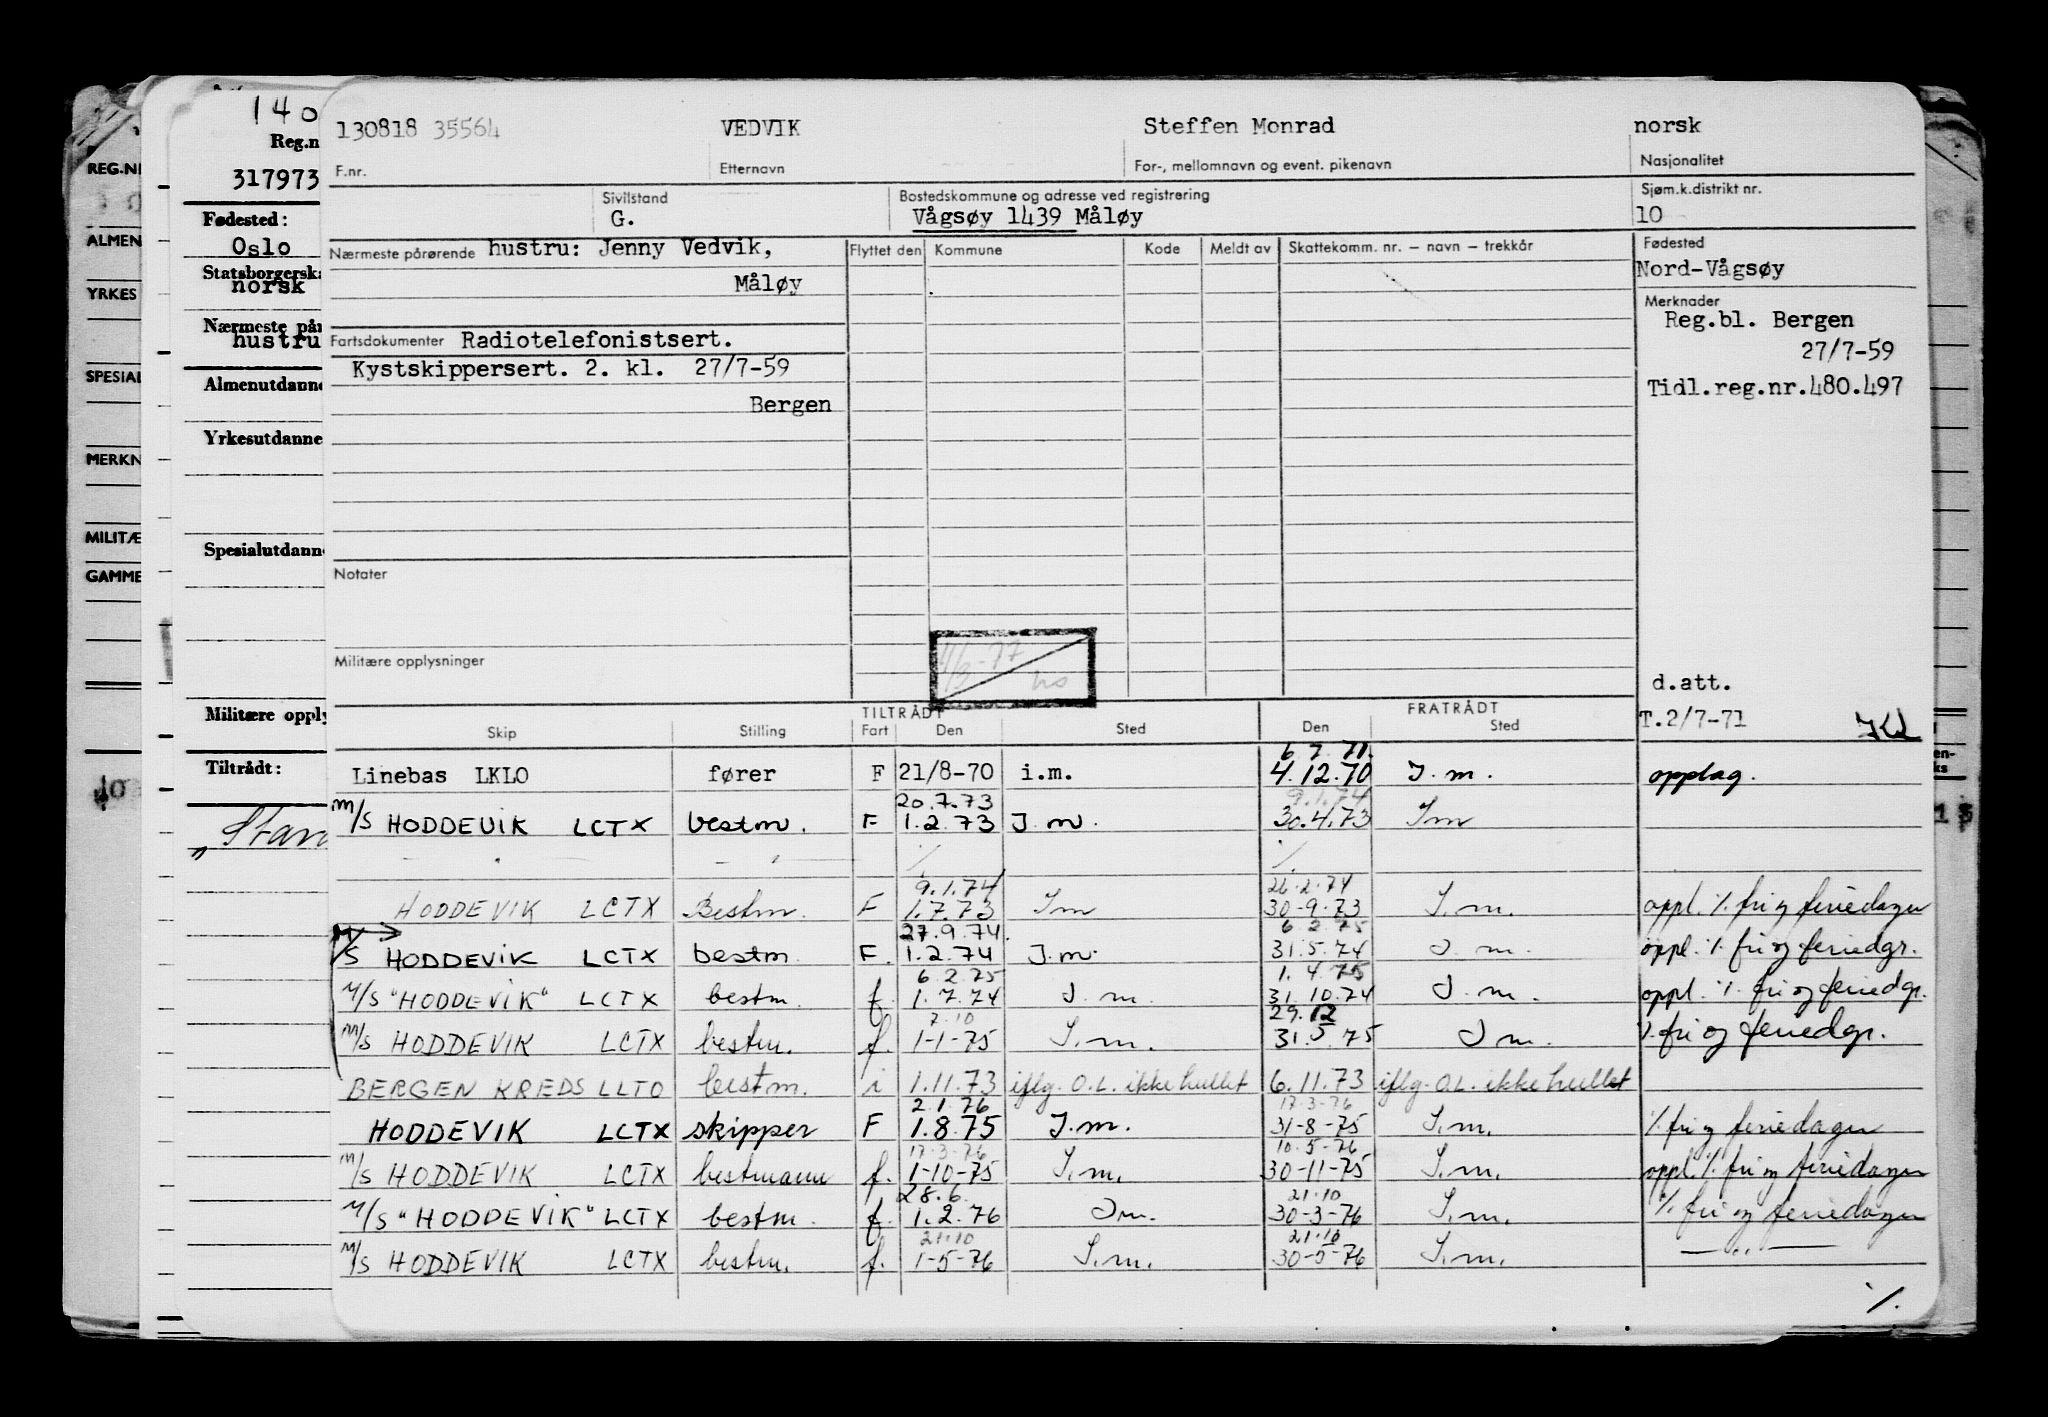 130818 35564 VEDVIK Steffen Monrad norsk
F.nr. Etternavn For-, mellomnavn og event. pikenavn Nasjonalitet
Sivilstand Bostedskommune og adresse ved registrering Sjøm.k.distrikt nr.
G. Vågsøy 1439 Måløy 10
Nærmeste pårørende hustru: Jenny Vedvik, Flyttet den Kommune Kode Meldt av Skattekomm. nr. – navn – trekkår Fødested
Måløy Nord-Vågsøy
Merknader
Fartsdokumenter Radiotelefonistsert. Reg.bl. Bergen
Kystskippersert. 2. kl. 27/7-59 27/7-59
Bergen Tidl.reg.nr.480.497
Notater
Militære opplysninger
1/3-77
d.att.
TILTRÅDT FRATRÅDT T.2/7-71
Skip Stilling Fart Den Sted Den Sted
6 7. 71.
Linebas LKLO fører F 21/8-70 i.m. 4.12.70 I.m. opplag.
20.7.73 9.1.74
M/S HODDEVIK LCTX bestm. F 1.2.73 I.m. 30.4.73 Im
— " — — " — ./. ./.
9.1.74 26.2.74
HODDEVIK LCTX Bestm. F 1.7.73 Im 30-9.73 I.m. oppl. ./. fri og feriedager
27.9.74. 6.2.75
M/S HODDEVIK LCTX bestm. F. 1.2.74 I.m. 31.5.74 I.m. oppl. ./. fri og feriedgr.
6.2.75 1.4.75
M/S "HODDEVIK" LCTX bestm. f. 1.7.74 I.m. 31.10.74 I.m. oppl. ./. fri og feriedgr.
7.10 29.12
M/S HODDEVIK LCTX bestm. f. 1-1-75 I.m. 31.5.75 I m. ./. fri og feriedgr.
BERGEN KREDS LLTO bestm. i 1.11.73 iflg. O.L. ikke hullet 6.11.73 iflg. O.L. ikke hullet
2.1.76 17-3-76
HODDEVIK LCTX skipper F 1.8.75 I.m. 31-8-75 I.m. ./. fri og feriedager
17-3-76 10-5-76
M/S HODDEVIK LCTX bestmann f. 1-10-75 I.m. 30-11-75 I.m. oppl. ./. fri og feriedager
28.6. 21.10
M/S "HODDEVIK" LCTX bestm. f. 1.2.76 Im. 30-3-76 I.m. ./. fri og feriedager
21.10 21.10
M/S HODDEVIK LCTX bestm. f. 1-5-76 I.m. 30-5-76 I.m. — " —
./.
140
Reg.n
317973
Fødested:
Oslo
Statsborgerska
norsk
Nærmeste pår
hustru
Almenutdanne
Yrkesutdanne
Spesialutdann
Militære opply
Tiltrådt:
"Star
REG.NR
ALMEN
YRKES
SPESIAL
MERKN
MILITÆ
GAMME